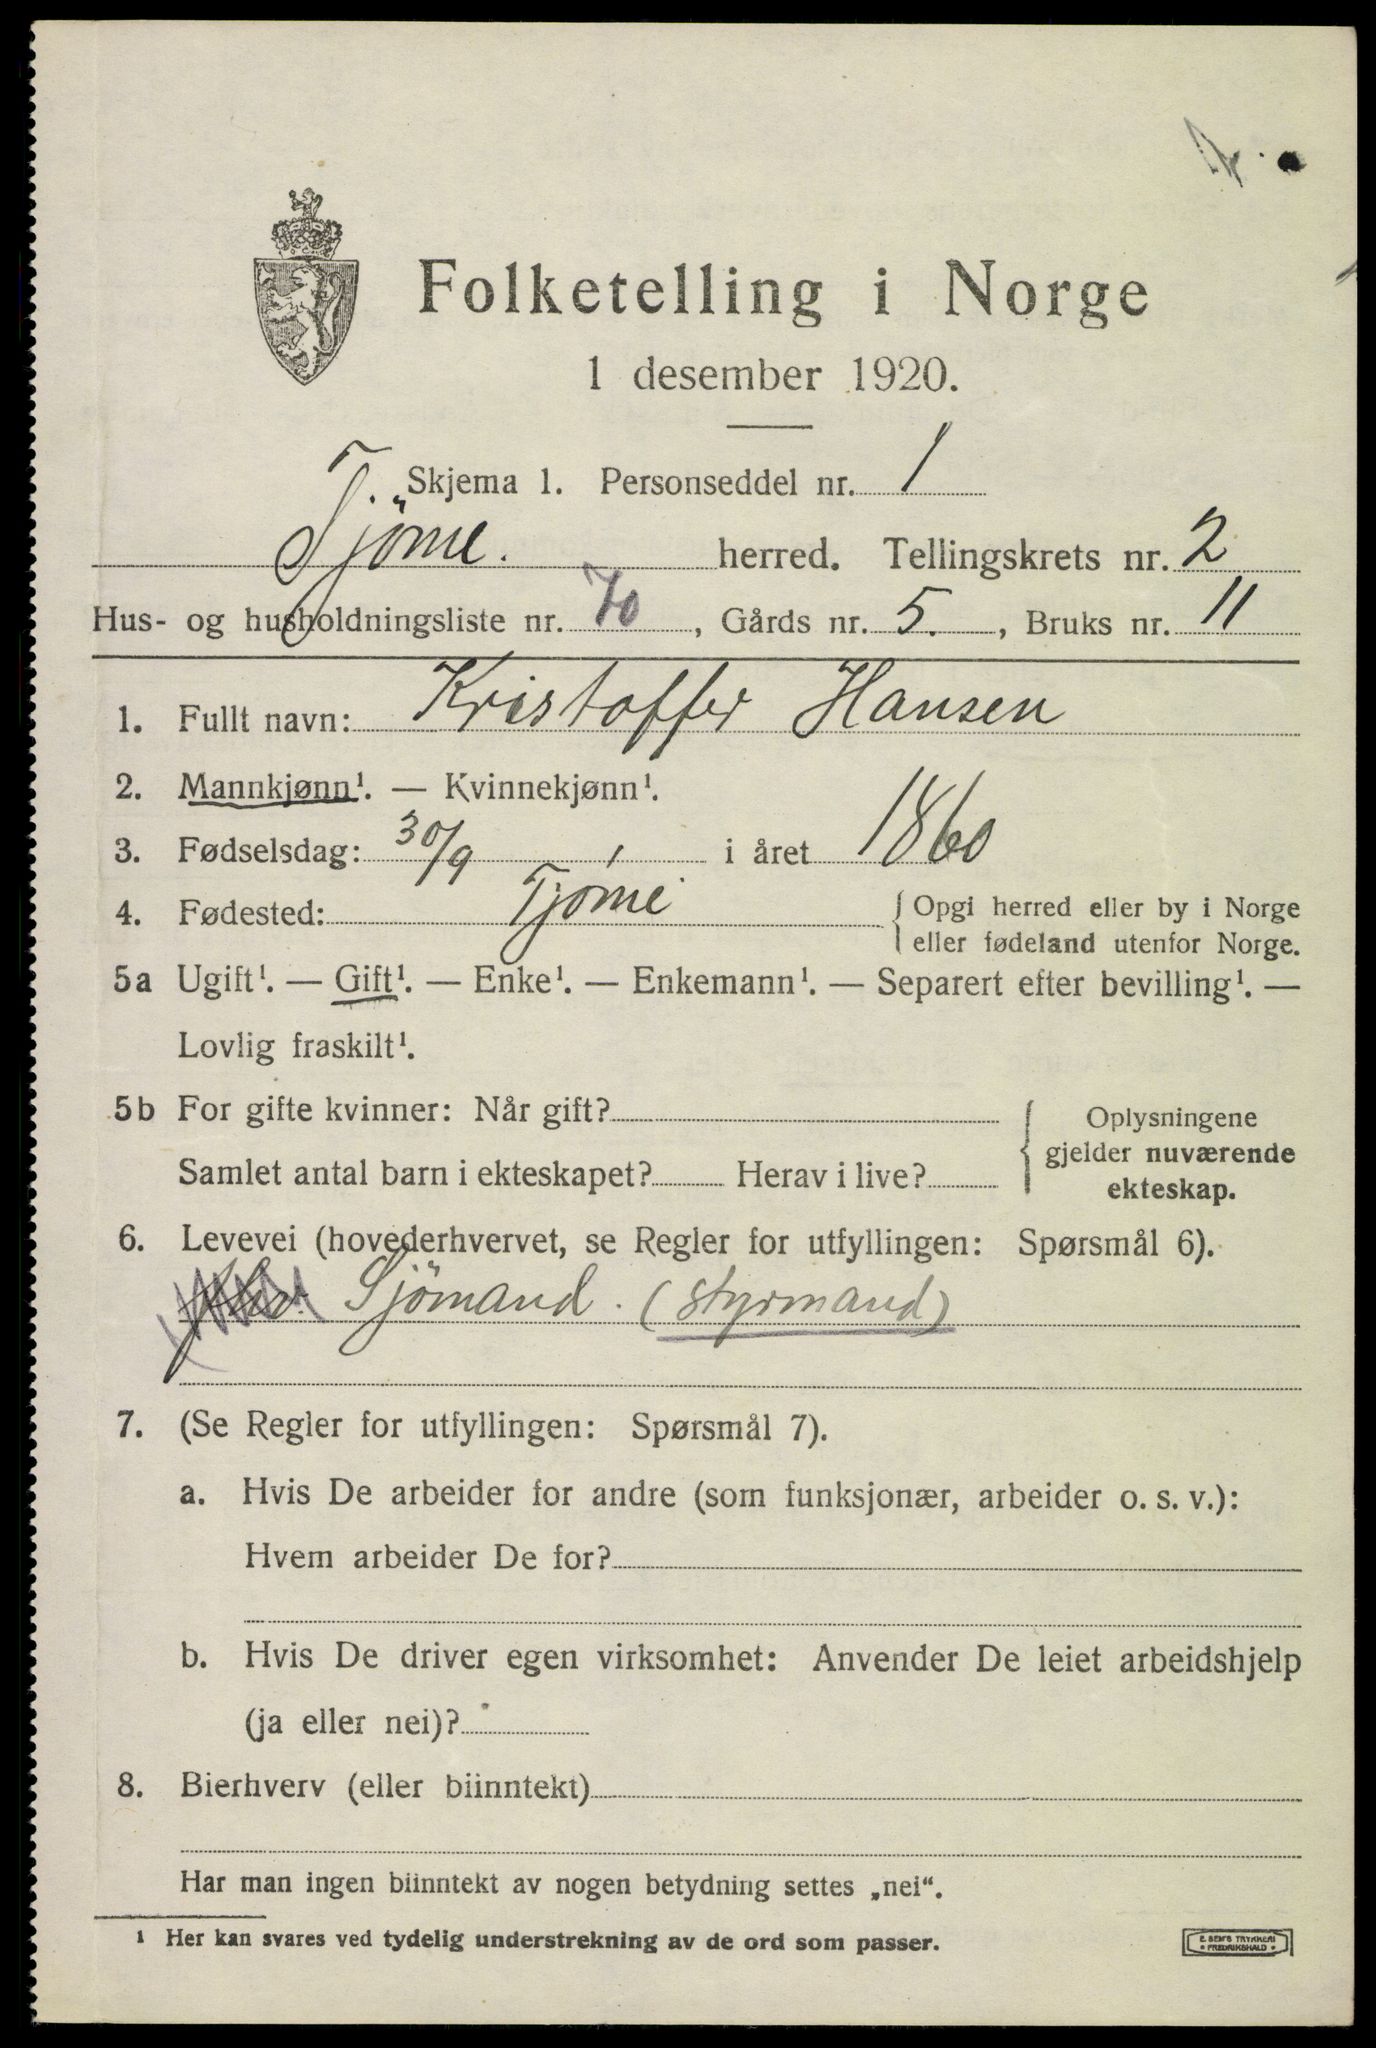 Folketelling i Norge
1 desember 1920.
Skjema 1. Personseddel nr. 1
Tjöme. herred. Tellingskrets nr. 2
Hus- og husholdningsliste nr. 70, Gårds nr. 5., Bruks nr. 11
1. Fullt navn: Kristoffer Hansen
2. Mannkjønn¹. — Kvinnekjønn¹.
3. Fødselsdag: 30/9 i året 1860
4. Fødested: Tjöme { Opgi herred eller by i Norge
eller fødeland utenfor Norge.
5a Ugift¹. — Gift¹. — Enke¹. — Enkemann¹. — Separert efter bevilling¹. —
Lovlig fraskilt¹.
5b For gifte kvinner: Når gift? { Oplysningene
gjelder nuværende
Samlet antal barn i ekteskapet? Herav i live?
ekteskap.
6. Levevei (hovederhvervet, se Regler for utfyllingen: Spørsmål 6).
Sjömand. (styrmand)
7. (Se Regler for utfyllingen: Spørsmål 7).
a. Hvis De arbeider for andre (som funksjonær, arbeider o. s. v.):
Hvem arbeider De for?
b. Hvis De driver egen virksomhet: Anvender De leiet arbeidshjelp
(ja eller nei)?
8. Bierhverv (eller biinntekt)
Har man ingen biinntekt av nogen betydning settes „nei“.
¹ Her kan svares ved tydelig understrekning av de ord som passer.
E. SEM'S TRYKKERI
* FREDRIKSHALD *